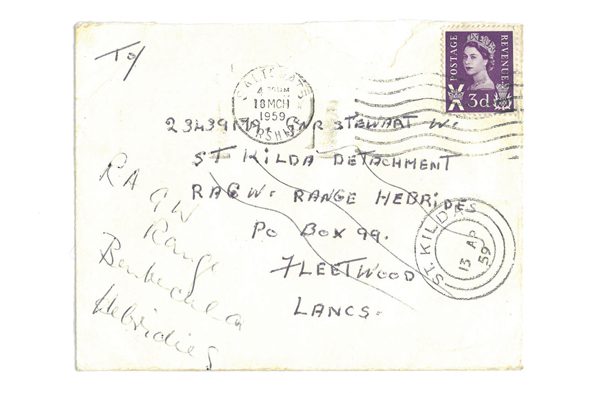 To/
POSTAGE REVENUE
3d
18 MCH
1959
GNR STEWART W.
ST KILDA DETACHMENT
RAGW. RANGE HEBRIDES
PO BOX 99.
FLEETWOOD
LANCS.
ST. KILDA
13 AP
59
RA
GW
Range
Benbecula
Hebridies